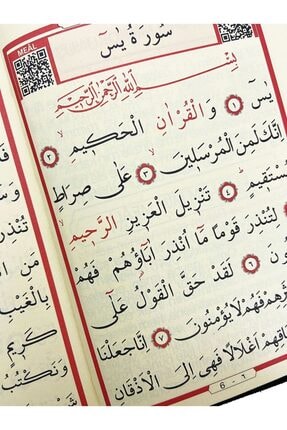 MEÂL
سُورَةُ يٰسٓ
بِسْمِ اللّٰهِ الرَّحْمٰنِ الرَّحٖيمِ
يٰسٓ ﴿١﴾ وَالْقُرْاٰنِ الْحَكٖيمِ ﴿٢﴾
اِنَّكَ لَمِنَ الْمُرْسَلٖينَ ﴿٣﴾ عَلٰى صِرَاطٍ
مُسْتَقٖيمٍ ﴿٤﴾ تَنْزٖيلَ الْعَزٖيزِ الرَّحٖيمِ
لِتُنْذِرَ قَوْمًا مَٓا اُنْذِرَ اٰبَٓاؤُ۬هُمْ فَهُمْ
﴿٦﴾ لَقَدْ حَقَّ الْقَوْلُ عَلٰٓى
فَهُمْ لَا يُؤْمِنُونَ ﴿٧﴾ اِنَّا جَعَلْنَا
اَغْلَالًا فَهِيَ اِلَى الْاَذْقَانِ
6 - ٦
تُنْذِرُ
مَنِ
بِالْغَيْبِ
كَرٖيمٍ
وَنَكْتُبُ